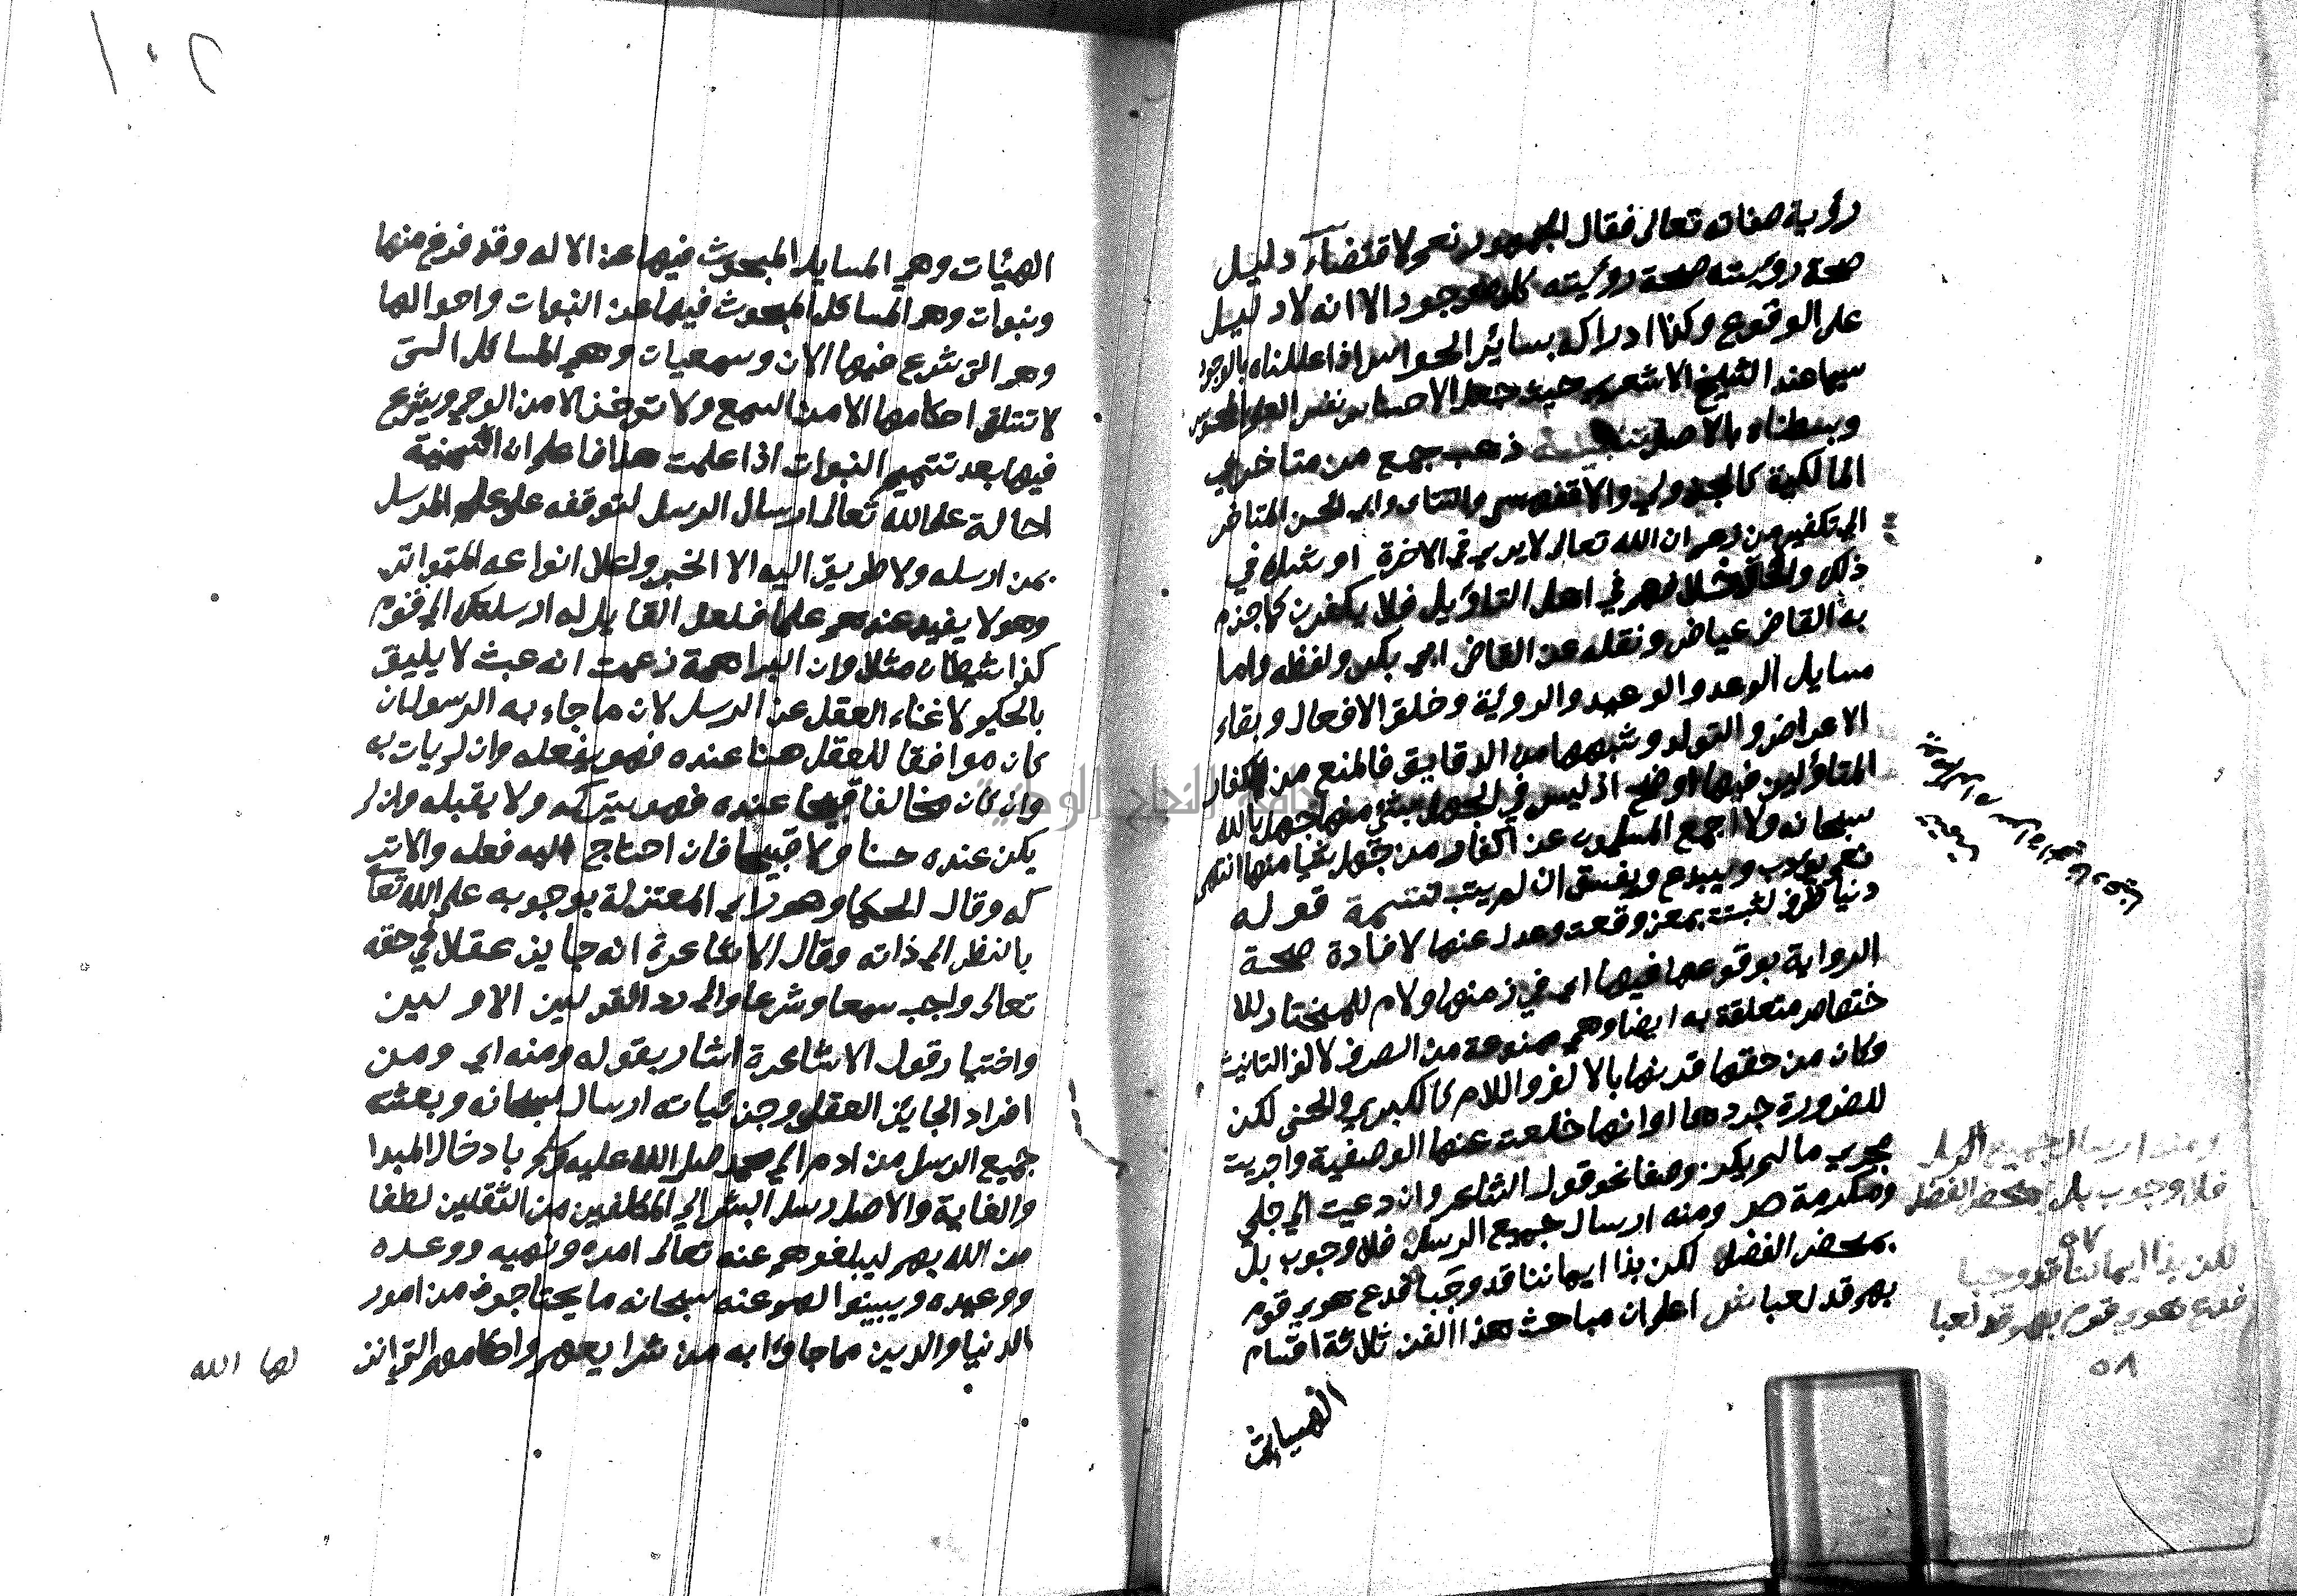 رؤية صفاته تعالى فقال الجمهور نعم لاقتضاء دليل
صحة رؤيته صحة رؤية كل موجود الا انه لا دليل
على الوقوع وكذا ادراكه بسائر الحواس اذا عللناه بالوجود
سيما عند الشيخ الاشعري حيث جعل الاحساس نفس العلم بالمحسوس
وبسطناه بالاصل ذهب جمع من متاخري
المالكية كالجزولي والاقفهسي والتتاي وابي الحسن المتاخر
الي تكفير من زعم ان الله تعالى لا يرى في الاخرة او شك في
ذلك في اهل التاؤيل فلا يكفرن كما جزم
به القاضى عياض ونقله عن القاضى ابي بكر ولفظه واما
مسايل الوعد والوعيد والروئية وخلق الافعال وبقاء
الاعراض والتولد وشبهها من الدقايق فالمنع من اكفار
المتاؤلين فيها اوضح اذ ليس في الجهل بشئ منها جهل بالله
سبحانه ولا اجمع المسلمون عن اكفار من جهل شيا منها انتهى
نعم يؤدب ويبدع ويفسق ان لم يتب تتمة قوله
دنيا ظرف لثبتت بمعنى وقعت وعدل عنها لافادة صحة
الرواية بوقوعها فيها اي في زمنها ولام للمختار للا
ختصاص متعلقة به ايضا وهي ممنوعة من الصرف لالف التانيث
وكان من حقها قرنها بالالف واللام كالكبرى والحسنى لكن
للضرورة جردها او انها خلعت عنها الوصفية واجريت
مجرى ما لم يكن وصفا نحو قول الشاعر وان دعيت الى جلي
ومكرمة ص ومنه ارسال جميع الرسل فلا وجوب بل
بمحض الفضل لكن بذا ايماننا قد وجبا فدع هوى قوم
بهم قد لعبا ش اعلم ان مباحث هذا الفن ثلاثة اقسام
الهيات
ومنه ارسال جميع الرسل
فلا وجوب بل بمحض الفضل
٥٧
لكن بذا ايماننا قد وجبا
فدع هوى قوم بهم قد لعبا
٥٨
١٠٢
الهيئات وهي المسايل المبحوث فيها عن الاله وقد فرغ منها
ونبوات وهي المسائل المبحوث فيها عن النبوات واحوالها
وهي التي شرع فيها الان وسمعيات وهي المسائل التى
لا تتلقى احكامها الا من السمع ولا توخذ الا من الوحي ويشرع
فيها بعد تتميم النبوات اذا علمت هذا فاعلم ان السمنية
احالة على الله تعالى ارسال الرسل لتوقفه على علم المرسل
بمن ارسله ولا طريق اليه الا الخبر ولعل انواعه المتواتر
وهو لا يفيد عندهم علما فلعل القايل له ارسلتك الي قوم
كذا شيطان مثلا وان البراهمة زعمت انه عبث لا يليق
بالحكيم لاغناء العقل عن الرسل لان ما جاء به الرسول ان
كان موافقا للعقل حسنا عنده فهو يفعله وان لم يات به
وان كان مخالفا قبيحا عنده فهو يتركه ولا يقبله وان لم
يكن عنده حسنا ولا قبيحا فان احتاج اليه فعله والا تر
كه وقال الحكما وهو راى المعتزلة بوجوبه على الله تعا
بالنظر الي ذاته وقال الاشاعرة انه جايز عقلا في حقه
تعالى واجب سمعا وشرعا والى رد القولين الاولين
واختيار قول الاشاعرة اشار بقوله ومنه اي ومن
افراد الجائز العقلي وجزئياته ارسال سبحانه وبعثته
جميع الرسل من ادم الي محمد صلى الله عليه وسلم بادخال المبدا
والغاية والاصل رسل البشر الي المكلفين من الثقلين لطفا
من الله بهم ليبلغوهم عنه تعالى امره ونهيه ووعده
ووعيده ويبينوا لهم عنه سبحانه ما يحتاجون من امور
الدنيا والدين مما جاؤا به من شرايعهم واحكامهم التي انز
لها الله
جامعة النجاح الوطنية